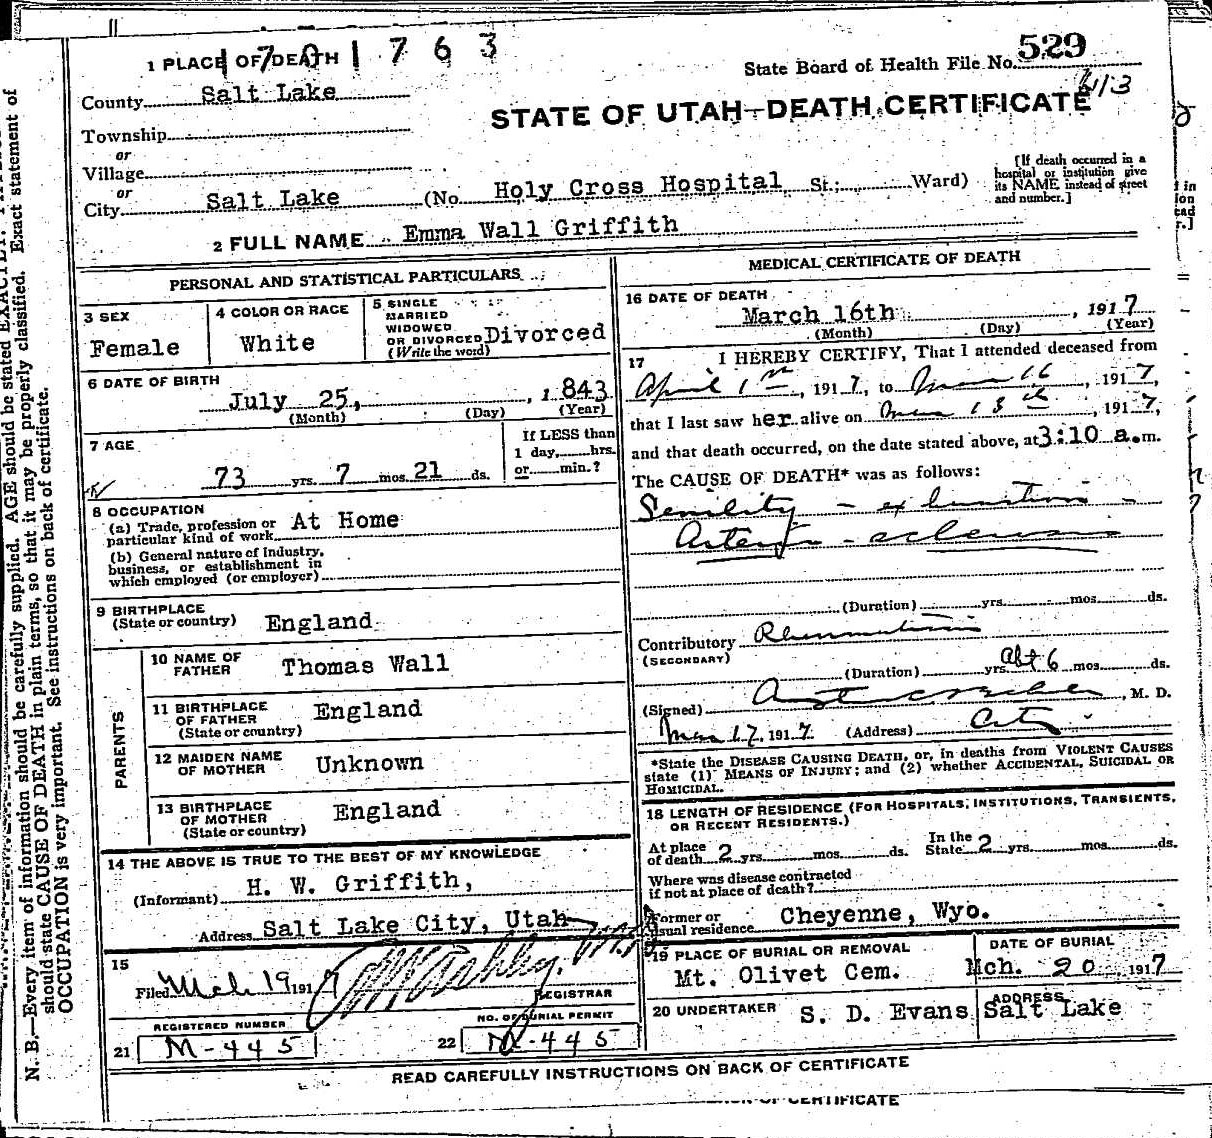 1 PLACE OF DEATH
1701763
State Board of Health File No. 529
County Salt Lake
413
STATE OF UTAH—DEATH CERTIFICATE
Township
or
Village
or
City Salt Lake (No. Holy Cross Hospital St.; Ward)
[If death occurred in a
hospital or institution give
its NAME instead of street
and number.]
2 FULL NAME Emma Wall Griffith
PERSONAL AND STATISTICAL PARTICULARS
3 SEX
Female
4 COLOR OR RACE
White
5 SINGLE
MARRIED
WIDOWED
OR DIVORCED Divorced
(Write the word)
6 DATE OF BIRTH
July 25, , 1843
(Month) (Day) (Year)
7 AGE
73 yrs. 7 mos. 21 ds.
If LESS than
1 day, hrs.
or min.?
8 OCCUPATION
(a) Trade, profession or
particular kind of work At Home
(b) General nature of industry,
business, or establishment in
which employed (or employer)
9 BIRTHPLACE
(State or country) England
PARENTS
10 NAME OF
FATHER Thomas Wall
11 BIRTHPLACE
OF FATHER
(State or country) England
12 MAIDEN NAME
OF MOTHER Unknown
13 BIRTHPLACE
OF MOTHER
(State or country) England
14 THE ABOVE IS TRUE TO THE BEST OF MY KNOWLEDGE
(Informant) H. W. Griffith,
Address Salt Lake City, Utah
15
Filed Mch 19 1917
REGISTRAR
REGISTERED NUMBER
21 M-445
NO. OF BURIAL PERMIT
22 M-445
MEDICAL CERTIFICATE OF DEATH
16 DATE OF DEATH
March 16th , 1917
(Month) (Day) (Year)
17 I HEREBY CERTIFY, That I attended deceased from
April 1st, 1917, to Mar 16, 1917,
that I last saw her alive on Mar 13th, 1917,
and that death occurred, on the date stated above, at 3:10 a.m.
The CAUSE OF DEATH* was as follows:
Senility - exhaustion -
Arterio - sclerosis
(Duration) yrs. mos. ds.
Contributory Rheumatism
(SECONDARY)
(Duration) yrs. abt 6 mos. ds.
(Signed) , M. D.
Mar 17, 1917. (Address) City
*State the DISEASE CAUSING DEATH, or, in deaths from VIOLENT CAUSES
state (1) MEANS OF INJURY; and (2) whether ACCIDENTAL, SUICIDAL OR
HOMICIDAL.
18 LENGTH OF RESIDENCE (FOR HOSPITALS, INSTITUTIONS, TRANSIENTS,
OR RECENT RESIDENTS.)
At place
of death 2 yrs. mos. ds.
In the
State 2 yrs. mos. ds.
Where was disease contracted
if not at place of death?
Former or
usual residence Cheyenne, Wyo.
19 PLACE OF BURIAL OR REMOVAL
Mt. Olivet Cem.
DATE OF BURIAL
Mch. 20 1917
20 UNDERTAKER S. D. Evans
ADDRESS
Salt Lake
READ CAREFULLY INSTRUCTIONS ON BACK OF CERTIFICATE
OF CERTIFICATE
N. B.—Every item of information should be carefully supplied. AGE should be stated EXACTLY.
should state CAUSE OF DEATH in plain terms, so that it may be properly classified. Exact statement of
OCCUPATION is very important. See instructions on back of certificate.